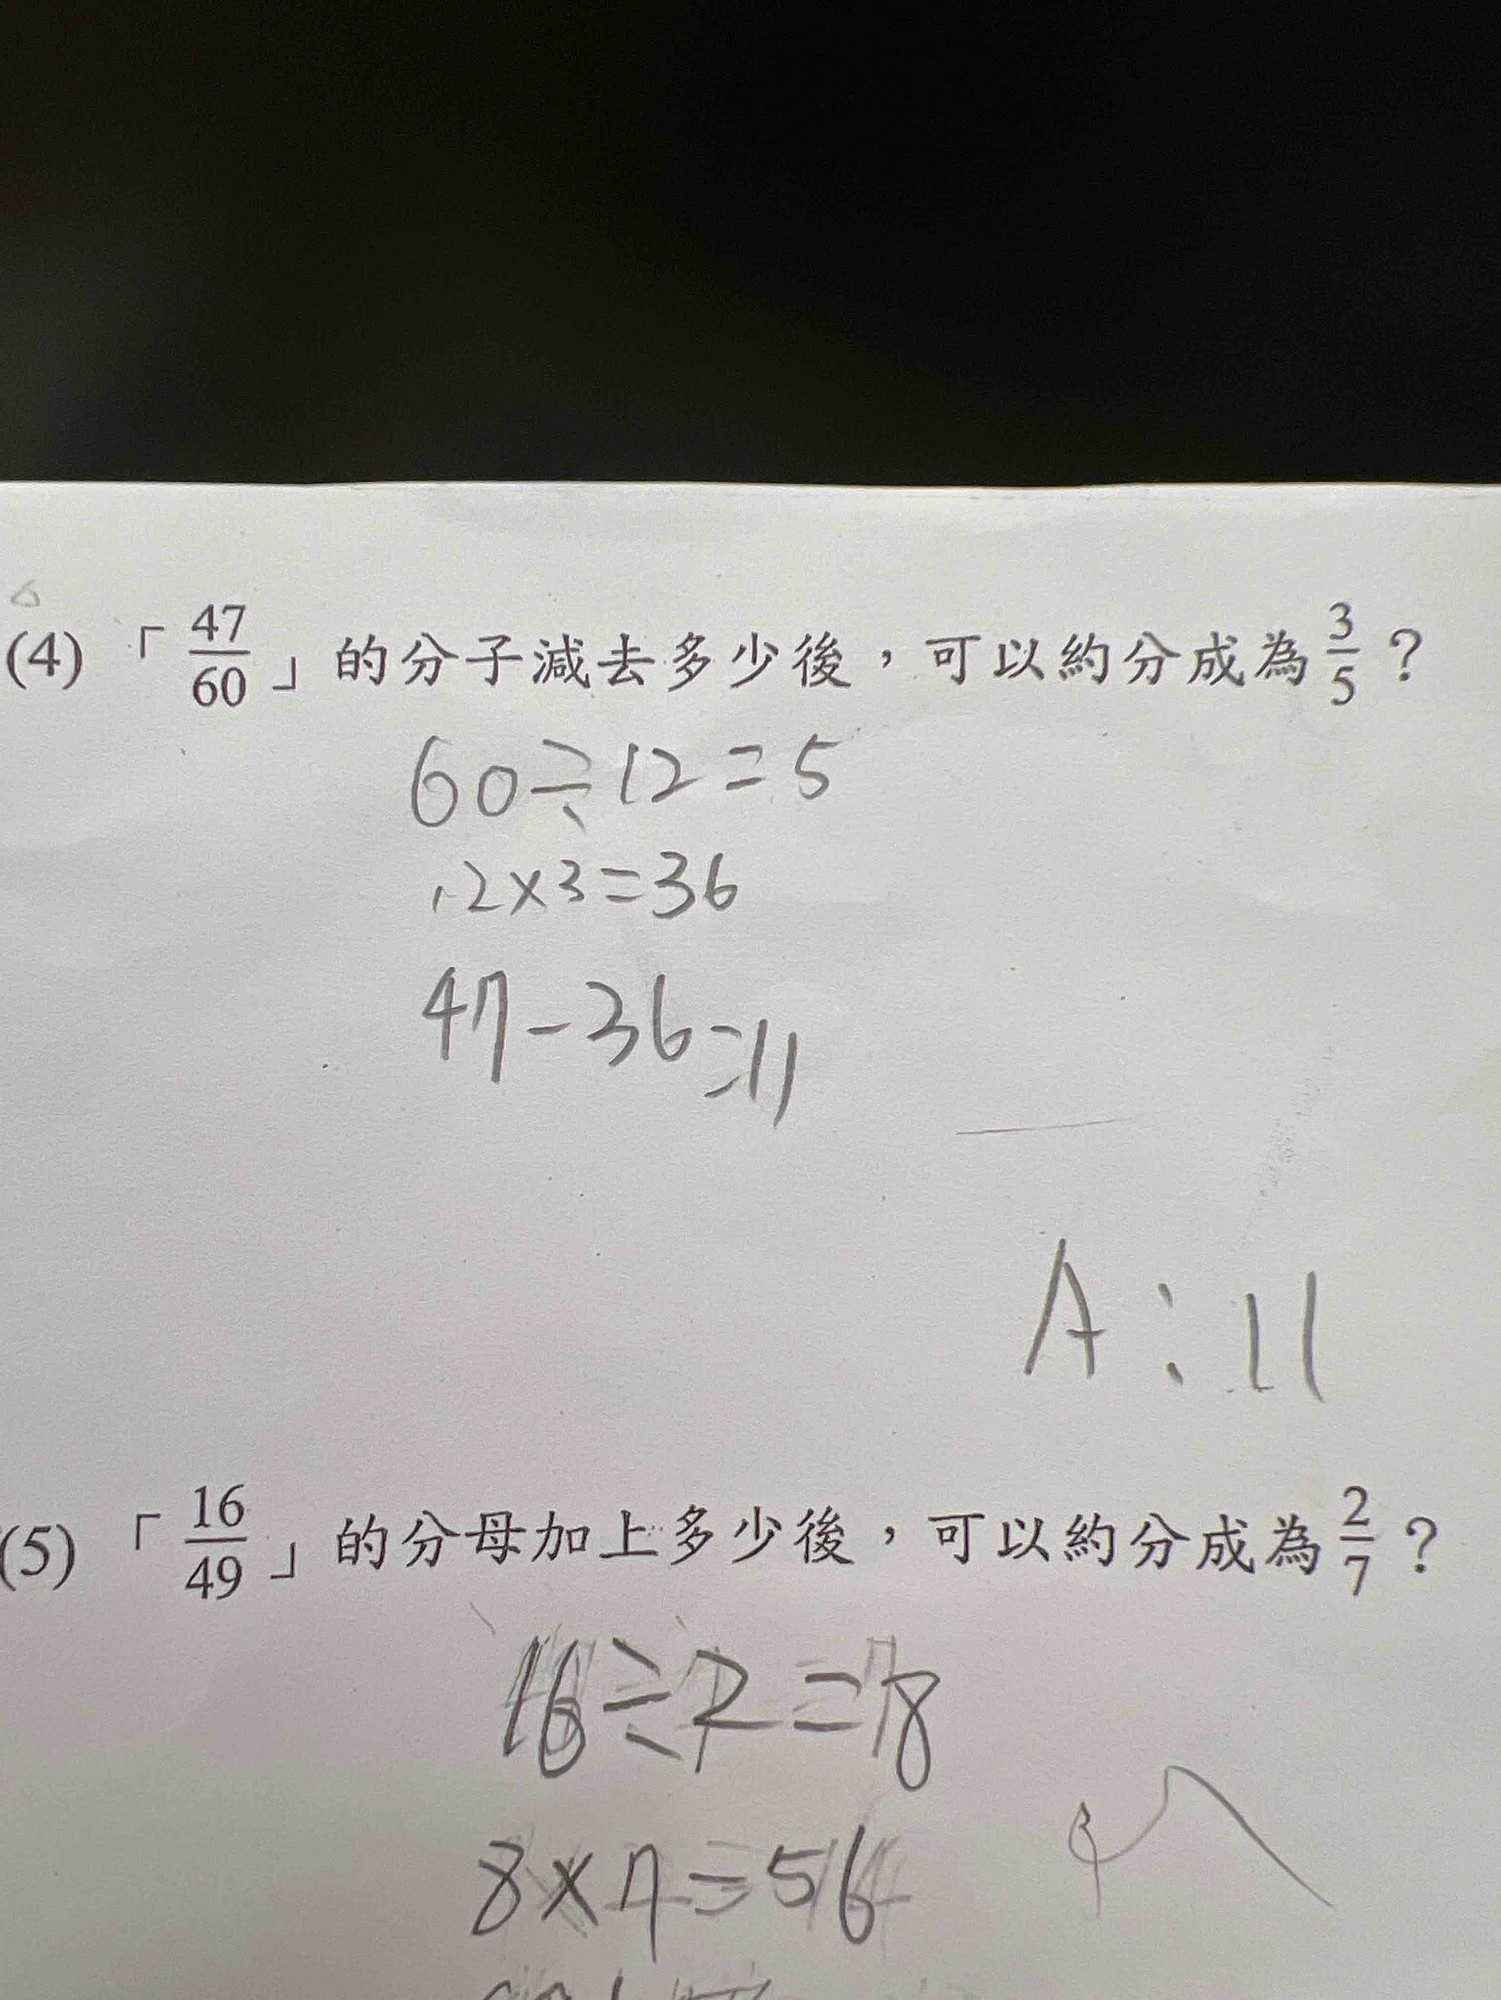 (4) 「47/60」的分子減去多少後，可以約分成為3/5？
60÷12=5
12×3=36
47-36=11
A:11
(5) 「16/49」的分母加上多少後，可以約分成為2/7？
16÷2=8
8×7=56